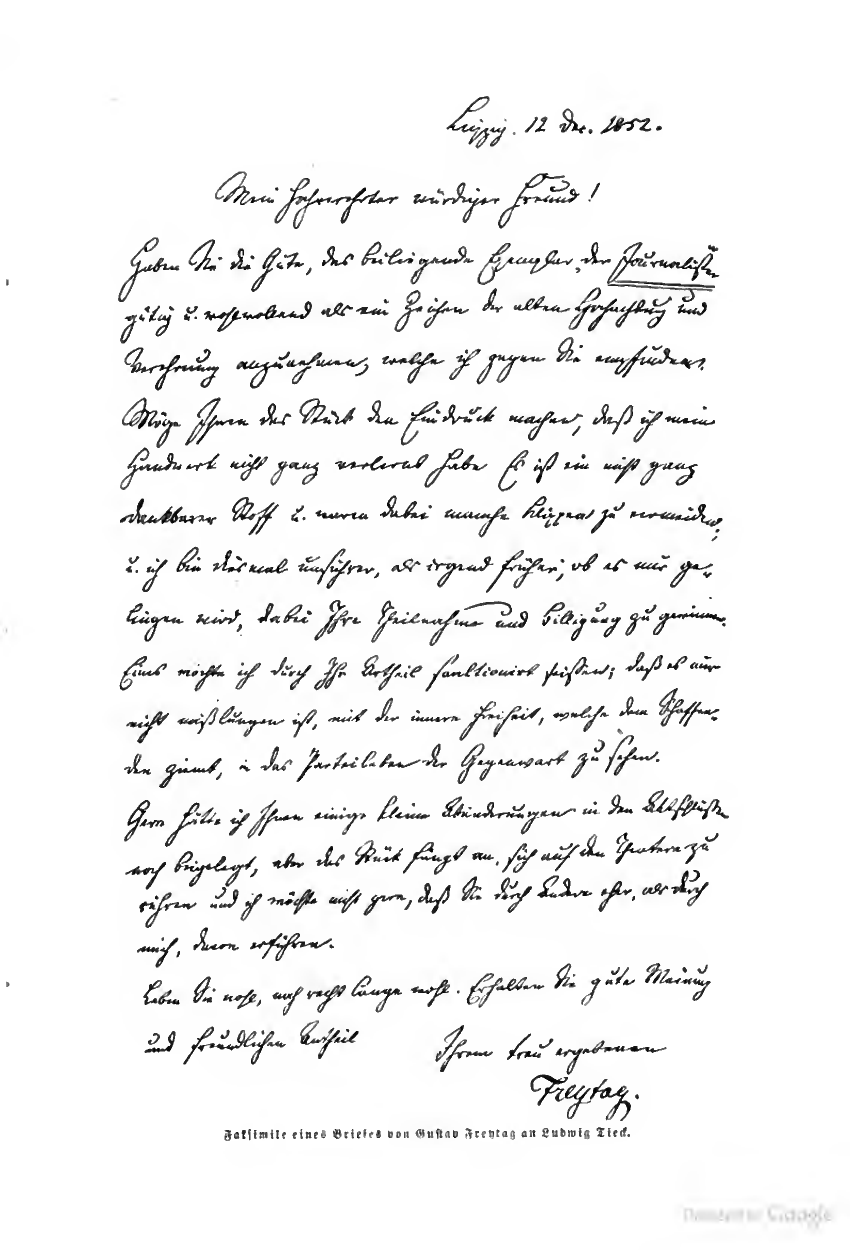 Leipzig. 12 Dec. 1852.
Mein hochverehrter würdiger Freund!
Haben Sie die Güte, das beiliegende Exemplar der Journalisten
gütig u. wohlwollend als ein Zeichen der alten Hochachtung und
Verehrung anzunehmen, welche ich gegen Sie empfinde.
Möge Ihnen das Stück den Eindruck machen, daß ich mein
Handwerk nicht ganz verlernt habe Es ist ein nicht ganz
dankbarer Stoff u. waren dabei manche Klippen zu vermeiden,
u. ich bin diesmal unsichrer, als irgend früher, ob es mir ge-
lingen wird, dabei Ihre Theilnahme und Billigung zu gewinnen.
Eins möchte ich durch Ihr Urtheil sanktionirt wissen; daß es mir
nicht mißlungen ist, mit der innern Freiheit, welche dem Schaffen-
den ziemt, in das Parteileben der Gegenwart zu sehen.
Gern hätte ich Ihnen einige kleine Abänderungen in den Aktschlüssen
noch beigelegt, aber das Stück fängt an, sich auf den Theatern zu
rühren und ich möchte nicht gern, daß Sie durch Andere eher, als durch
mich, davon erführen.
Leben Sie wohl, noch recht lange wohl. Erhalten Sie gute Meinung
und freundlichen Antheil
Ihrem treu ergebenen
Freytag.
Faksimile eines Briefes von Gustav Freytag an Ludwig Tieck.
Google